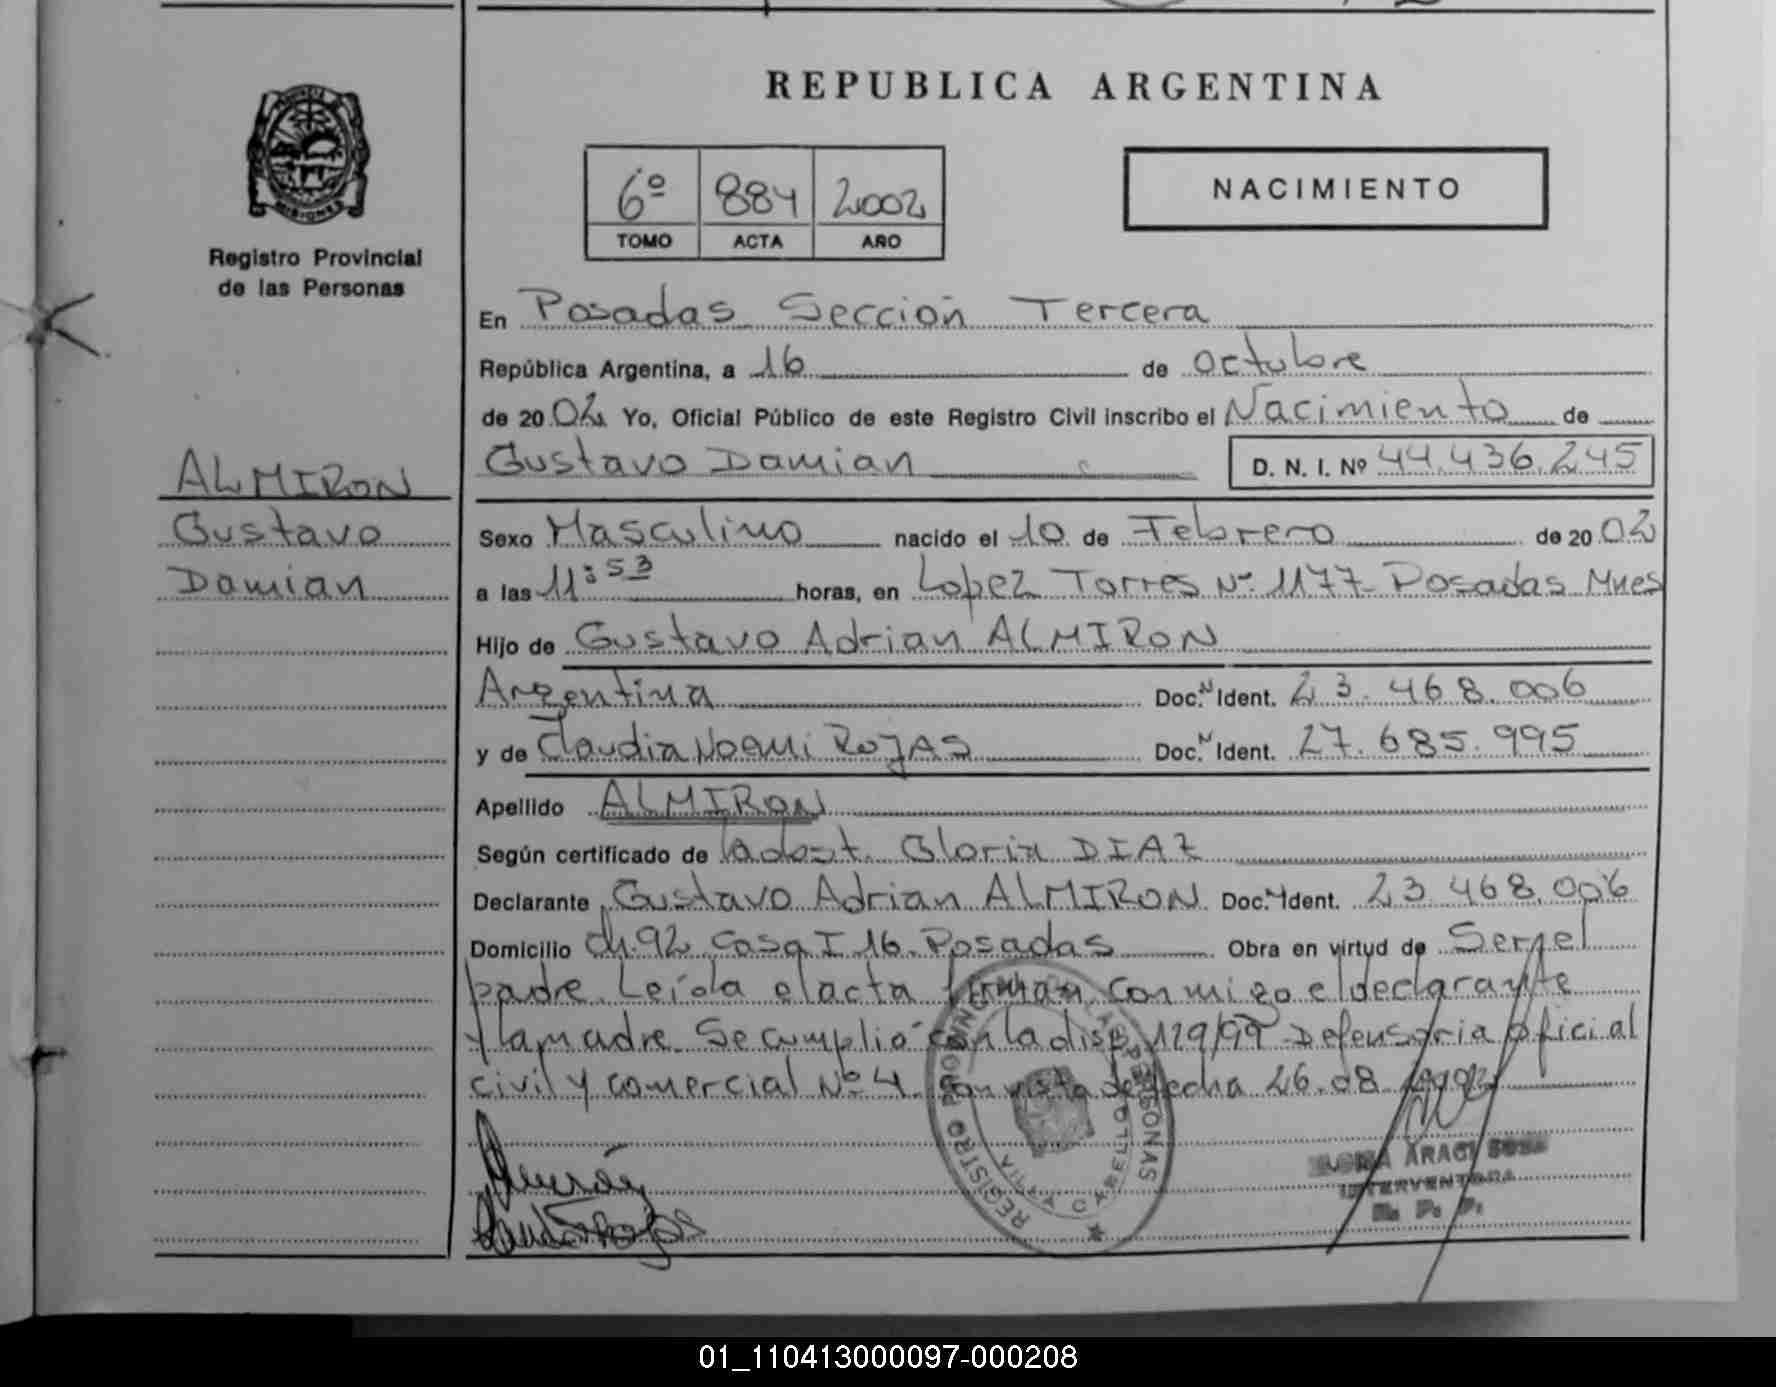 REPUBLICA ARGENTINA
MISIONES
Registro Provincial
de las Personas
6º 884 2002
TOMO ACTA AÑO
NACIMIENTO
En Posadas Sección Tercera
República Argentina, a 16 de octubre
de 20 02 Yo, Oficial Público de este Registro Civil inscribo el Nacimiento de
Gustavo Damian D. N. I. Nº 44.436.245
ALMIRON
Gustavo
Damian
Sexo Masculino nacido el 10 de Febrero de 20 02
a las 11:53 horas, en Lopez Torres Nº 1177 Posadas Mnes
Hijo de Gustavo Adrian ALMIRON
Argentina Doc. N Ident. 23.468.006
y de Claudia Noemi ROJAS Doc. N Ident. 27.685.995
Apellido ALMIRON
Según certificado de la obst. Gloria DIAZ
Declarante Gustavo Adrian ALMIRON Doc. N Ident. 23.468.006
Domicilio Ch. 92 Casa I 16 Posadas Obra en virtud de Ser el
padre Leída el acta firman conmigo el declarante
y la madre Se cumplió con la disp. 129/99 Defensoria oficial
civil y comercial Nº 4 con vista de fecha 26.08
REGISTRO PROVINCIAL DE LAS PERSONAS
ARACI SOSA
INTERVENTORA
R. P. P.
01_110413000097-000208